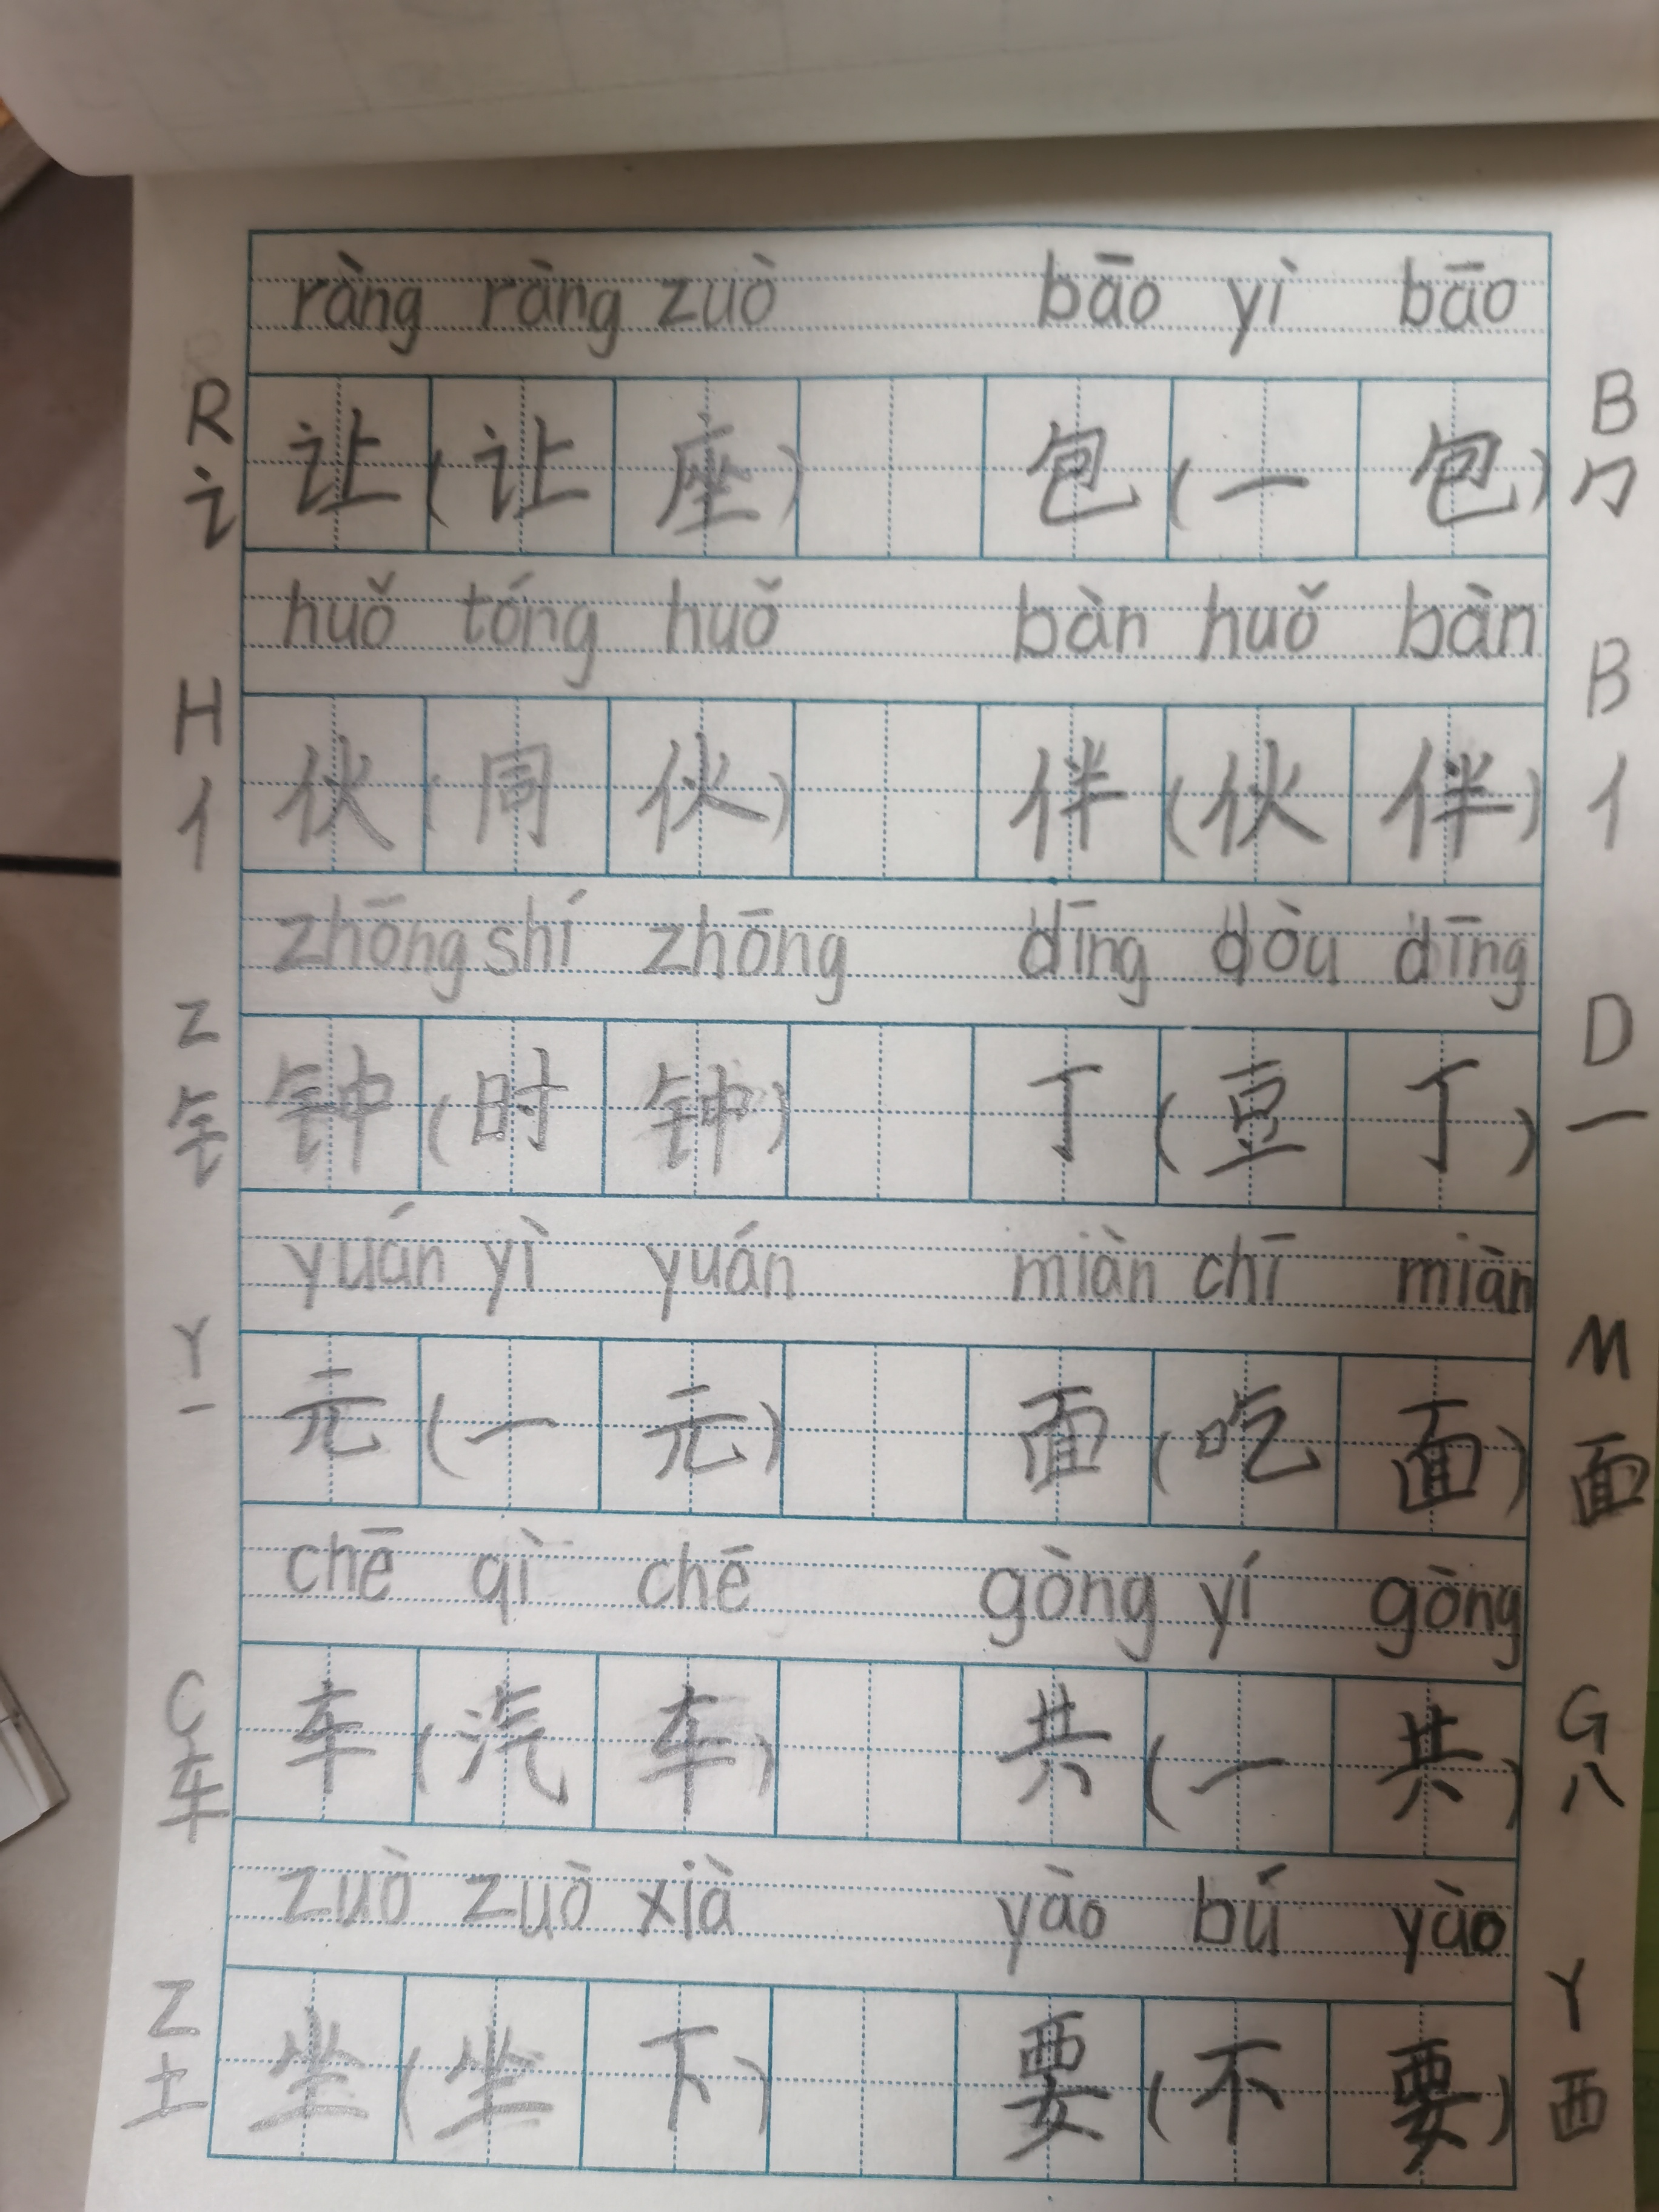 ràng ràng zuò bāo yì bāo
R 让 (让座) 包 (一包) B
讠 勹
huǒ tóng huǒ bàn huǒ bàn
H 伙 (同伙) 伴 (伙伴) B
亻 亻
zhōng shí zhōng dīng dòu dīng
Z 钟 (时钟) 丁 (豆丁) D
钅 一
yuán yì yuán miàn chī miàn
Y 元 (一元) 面 (吃面) M
一 面
chē qì chē gòng yí gòng
C 车 (汽车) 共 (一共) G
车 八
zuò zuò xià yào bú yào
Z 坐 (坐下) 要 (不要) Y
土 西